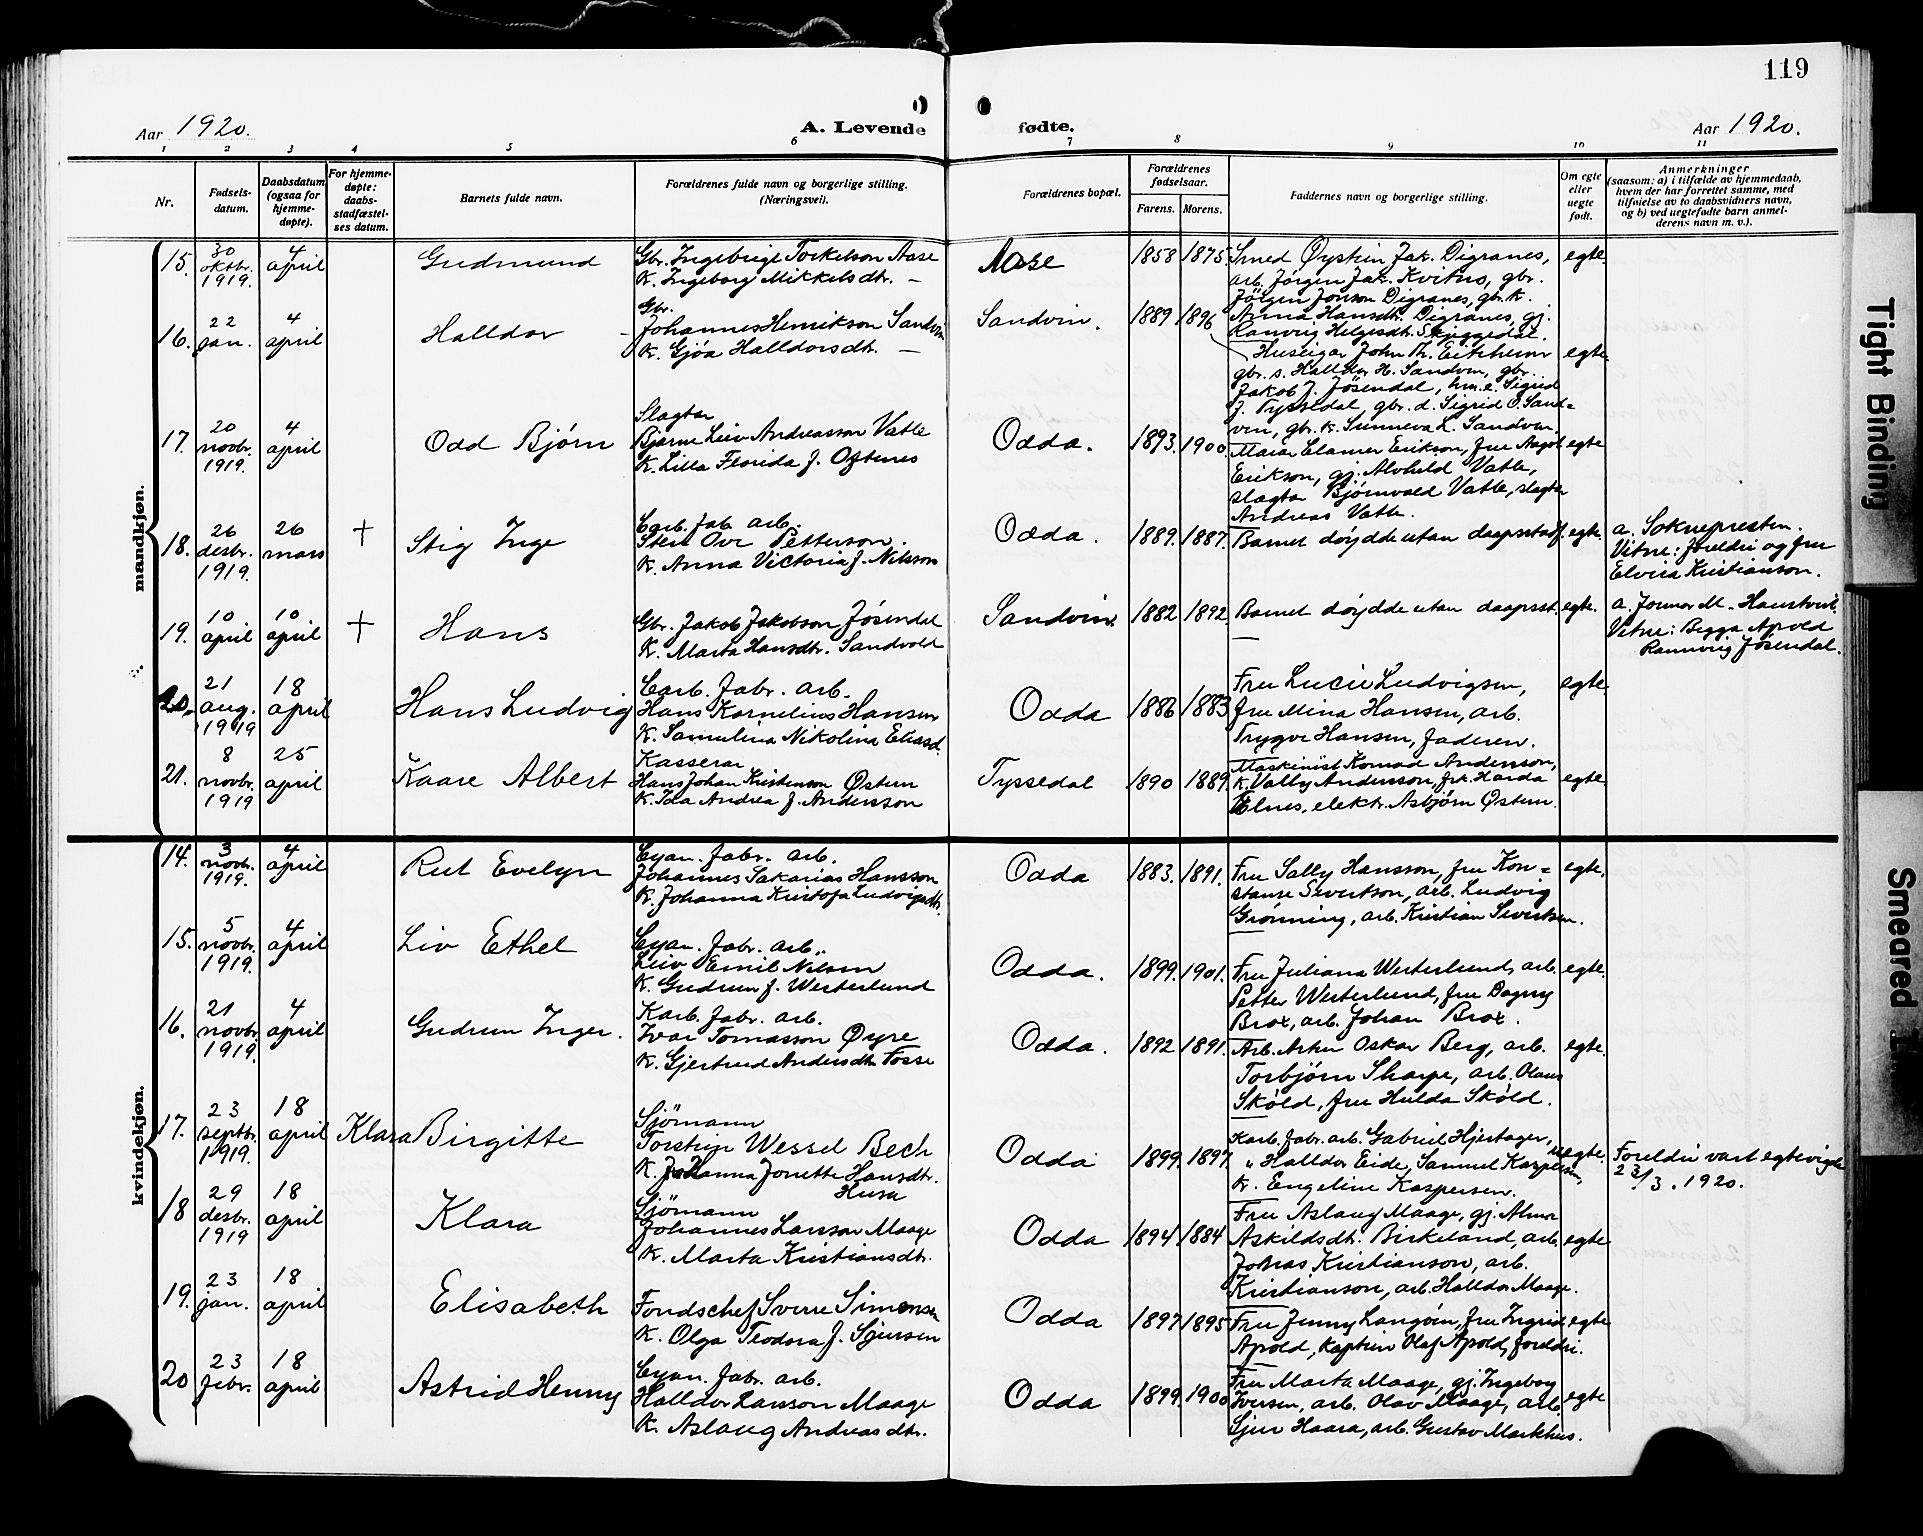 119
Aar 1920.
A. Levende fødte.
Aar 1920.
1 2 3 4 5 6 7 8 9 10 11
Nr.
Fødsels-
datum.
Daabsdatum
(ogsaa for
hjemme-
døpte).
For hjemme-
døpte:
daabs-
stadfæstel-
ses datum.
Barnets fulde navn.
Forældrenes fulde navn og borgerlige stilling.
(Næringsvei).
Forældrenes bopæl.
Forældrenes
fødselsaar.
Farens. Morens.
Faddernes navn og borgerlige stilling.
Om egte
eller
uegte
født.
Anmerkninger
(saasom: a) i tilfælde av hjemmedaab,
hvem der har forrettet samme, med
tilføielse av to daabsvidners navn,
og b) ved uegtefødte barn anmel-
derens navn m. v.).
mandkjøn.
15.
30
oktbr.
1919.
4
april
Gudmund
Gbr. Ingebrigt Torkelson Aase
K. Ingeborg Mikkelsdtr. —
Aase
1858 1875.
Smed Øystein Jak. Digranes,
arb. Jørgen Jak. Kvitno, gbr.
Jørgen Jonson Digranes, gbr. k.
Anna Hansdtr. Digranes, gj.
Ranveig Helgesdtr. Skjeggedal.
egte.
16.
22
jan.
4
april
Halldor
Gbr.
Johannes Henrikson Sandvin
K. Gjøa Halldorsdtr. —
Sandvin.
1889 1896
Huseigar John Th. Eitrheim
gbr. s. Halldor H. Sandvin, gbr.
Jakob J. Jøsendal, hm. e. Sigrid
J. Tyssedal, gbr. d. Sigrid O. Sand=
vin, gbr. k. Sunneva L. Sandven.
egte
17.
20
novbr.
1919.
4
april
Odd Bjørn
Slagtar
Bjarne Leiv Andreasson Vatle
K. Lilla Florida f. Oftenes
Odda.
1893. 1900
Maria Elamer Erikson, frue Aagot
Erikson, gj. Alvhild Vatle,
slagtar Bjørnvald Vatle, slagtar
Andreas Vatle.
egte
18.
26
desbr.
1919.
26
mars
+
Stig Inge
Carb. fab. arb.
Sten Ove Petterson.
K. Anna Victoria f. Nilsson
Odda.
1889. 1887.
Barnet døydde utan daapsstadf.
egte.
a. Soknepresten.
Vitne: foreldri og fru
Elvira Kristianson.
19.
10
april
10
april
+
Hans
Gbr. Jakob Jakobson Jøsendal
K. Marta Hansdtr. Sandvold
Sandvin.
1882 1892
Barnet døydde utan daapsst.
—
egte.
a. Jormor M. Haustveit
Vitne: Begga Apold
Rannveig Jøsendal.
20.
21
aug.
1919
18
april
Hans Ludvig
Carb. fabr. arb.
Hans Kornelius Hansen
K. Samuline Nikolina Eliasd.
Odda
1886 1883
Fru Lucie Ludvigsen,
fru Mina Hansen, arb.
Trygve Hansen, faderen.
egte
21.
8
novbr.
1919
25
april
Kaare Albert
Kasserar
Hans Johan Kristenson Østern
K. Ida Andrea f. Andersson
Tyssedal
1890 1889.
Maskinist Konrad Andersson,
K. Vally Andersson, frk. Harda
Elnes, elektr. Asbjørn Østern.
egte.
kvindekjøn.
14.
3
novbr.
1919.
4
april
Rut Evelyn
Cyan. fabr. arb.
Johannes Sakarias Hansson
K. Johanna Kristofa Ludvigsdtr.
Odda
1883. 1891.
Fru Sally Hansson, fru Kon=
stanse Sivertson, arb. Ludvig
Grønning, arb. Kristian Sivertsen.
egte.
15.
5
novbr.
1919.
4
april
Liv Ethel
Cyan. fabr. arb.
Leiv Emil Nilsen
K. Gudrun f. Westerlund
Odda.
1899. 1901.
Fru Juliana Westerlund, arb.
Petter Westerlund, fru Dagny
Brox, arb. Johan Brox.
egte.
16.
21
novbr.
1919.
4
april
Gudrun Inger.
Karb. fabr. arb.
Ivar Tomasson Øyre
K. Gjertrud Andersdtr. Fosse
Odda.
1892 1891.
Arb. Artur Oskar Berg, arb.
Torbjørn Sharpe, arb. Olaus
Skøld, fru Hulda Skøld.
egte.
17.
23
septbr.
1919.
18
april
Klara Birgitte
Sjömann
Torstein Wessel Bech
K. Johanna Jonette Hansdtr.
Husa
Odda
1899. 1897.
Karb. fabr. arb. Gabriel Hjertager,
" Halldor Eide, Samuel Kaspersen,
K. Engeline Kaspersen.
uegte.
Foreldri vart egtevigde
23/3. 1920.
18
29
desbr.
1919
18
april
Klara
Sjömann
Johannes Larsson Maage
K. Marta Kristiansdtr.
Odda
1894 1884
Fru Aslaug Maage, gj. Alma
Askildsdtr. Birkeland, arb.
Jonas Kristianson, arb.
Kristianson, arb. Halldor Maage.
egte
19.
23
jan.
18
april
Elisabeth
Fondschef Sverre Simonsen
K. Olga Teodora f. Sjursen
Odda
1897 1895
Fru Jenny Langøin, fru Ingrid
Apold, kaptein Olaf Apold, foreldri.
egte
20
23
febr.
18
april
Astrid Henny
Cyan. fabr. arb.
Halldor Larsson Maage
K. Aslaug Andreasdtr.
Odda
1899. 1900
Fru Marta Maage, gj. Ingeborg
Iversen, arb. Olav Maage, arb.
Sjur Haara, arb. Gustav Markhus.
egte
Tight Binding
Smeared